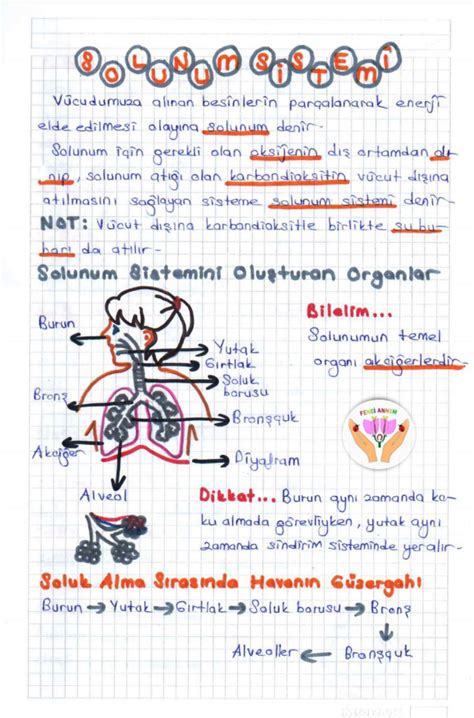 SOLUNUM SİSTEMİ
Vücudumuza alınan besinlerin parçalanarak enerji
elde edilmesi olayına solunum denir.
Solunum için gerekli olan oksijenin dış ortamdan alı
nıp, solunum atığı olan karbondioksitin vücut dışına
atılmasını sağlayan sisteme solunum sistemi denir.
NOT: Vücut dışına karbondioksitle birlikte su bu-
harı da atılır.
Solunum Sistemini Oluşturan Organlar
Burun
Yutak
Gırtlak
Soluk
borusu
Bronş
Bronşçuk
Akciğer
Diyafram
Alveol
Bilelim...
Solunumun temel
organı akciğerlerdir.
FENCİ ANNEM
Dikkat... Burun aynı zamanda ko-
ku almada görevliyken, yutak aynı
zamanda sindirim sisteminde yer alır.
Soluk Alma Sırasında Havanın Güzergahı
Burun → Yutak → Gırtlak → Soluk borusu → Bronş
Alveoller ← Bronşçuk